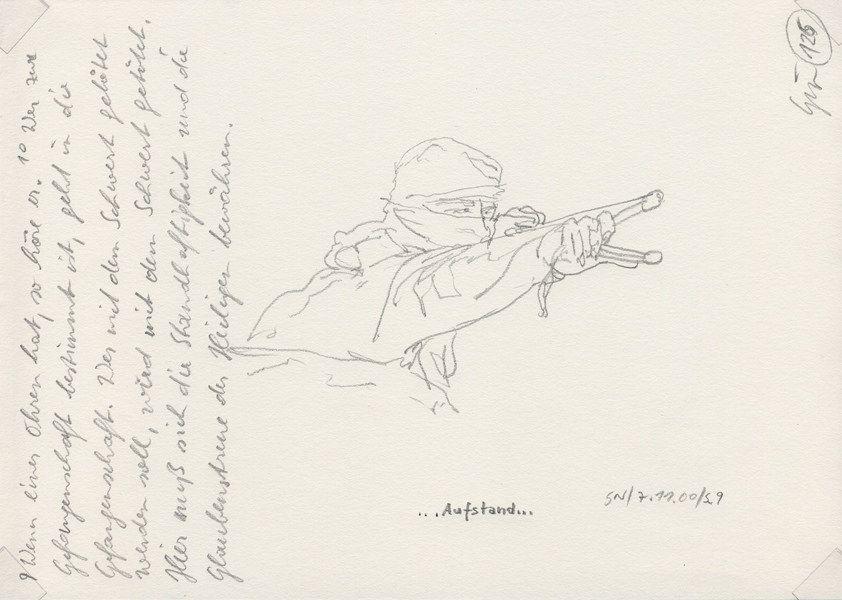 9 Wenn einer Ohren hat, so höre er. 10 Wer zur
Gefangenschaft bestimmt ist, geht in die
Gefangenschaft. Wer mit dem Schwert getötet
werden soll, wird mit dem Schwert getötet.
Hier muß sich die Standhaftigkeit und die
Glaubenstreue der Heiligen bewähren.
126
...Aufstand...
SN/7.11.00/S.9